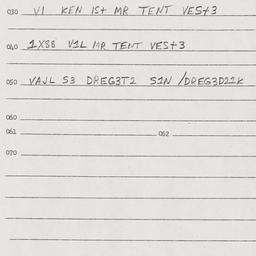 030 VI KEN IS+ MR TENT VES+3
040 1X88 V1L MR TENT VES+3
050 VAJL S3 DREG3T2 S1N /DREG3D21K
060
061 062
070